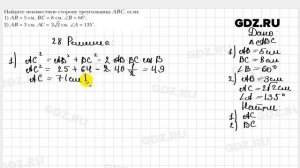 Найдите неизвестную сторону треугольника ABC, если:
1) AB = 5 см, BC = 8 см, ∠B = 60°;
2) AB = 3 см, AC = 2√2 см, ∠A = 135°.
GDZ.RU
28 Решение
1) AC² = AB² + BC² - 2 AB BC cos B
AC² = 25 + 64 - 2·40 ½ = 49
AC = 7(см)
Дано
△ABC
1) AB = 5см
BC = 8см
∠B = 60°
2) AB = 3см
AC = 2√2 см
∠A = 135°
Найти
1) AC
2) BC
GDZ.RU